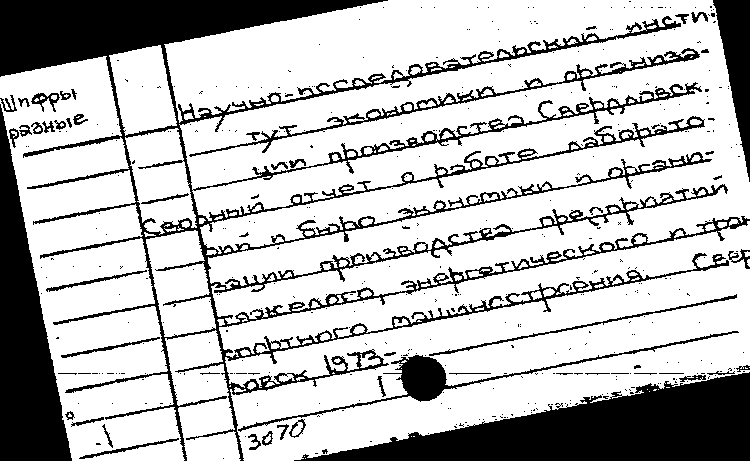 Шифры
разные
Научно-исследовательский инсти-
тут экономики и организа-
ции производства. Свердловск.
Сводный отчет о работе лаборато-
рий и бюро экономики и органи-
зации производства предприятий
тяжелого, энергетического и тран
спортного машиностроения. Свер
ловск, 1973-
1
3070